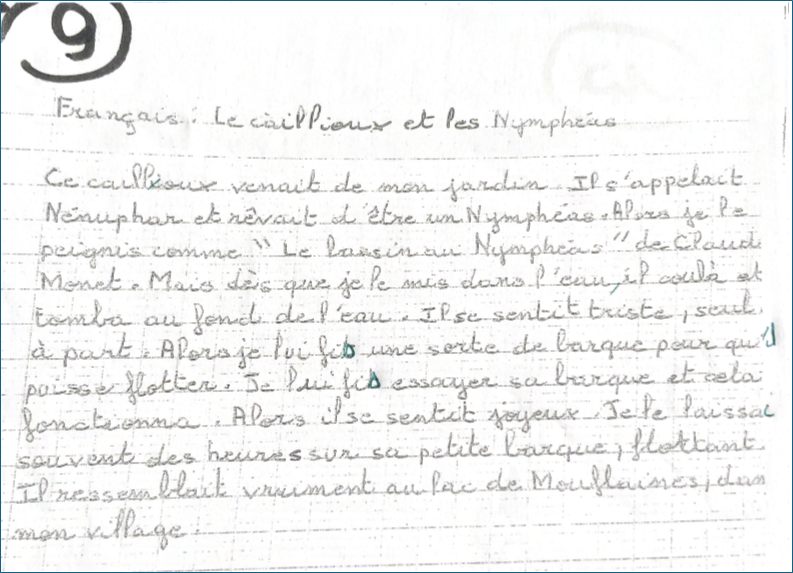 9
Français : Le caillioux et les Nymphéas
Ce caillioux venait de mon jardin. Il s'appelait
Nénuphar et rêvait d'être un Nymphéas. Alors je le
peignis comme "Le bassin au Nymphéas" de Claud
Monet. Mais dès que je le mis dans l'eau, il coula et
tomba au fond de l'eau. Il se sentit triste, seul,
à part. Alors je lui fis une sorte de barque pour qu'il
puisse flotter. Je lui fis essayer sa barque et cela
fonctionna. Alors il se sentit joyeux. Je le laissai
souvent des heures sur sa petite barque, flottant.
Il ressemblait vraiment au lac de Mouflaines, dan
mon village.